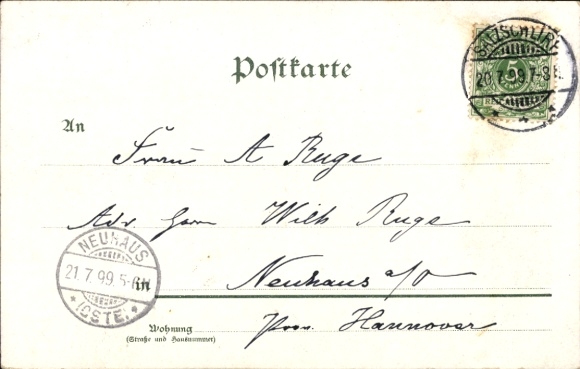 Postkarte
SALZSCHLIRF
20.7.99.7-8N.
5
An
Frau A Ruge
Adr. Herrn Wilh Ruge
NEUHAUS
21.7.99.5-6N
* (OSTE) *
in Neuhaus a/O
Wohnung
(Straße und Hausnummer)
Prov. Hannover